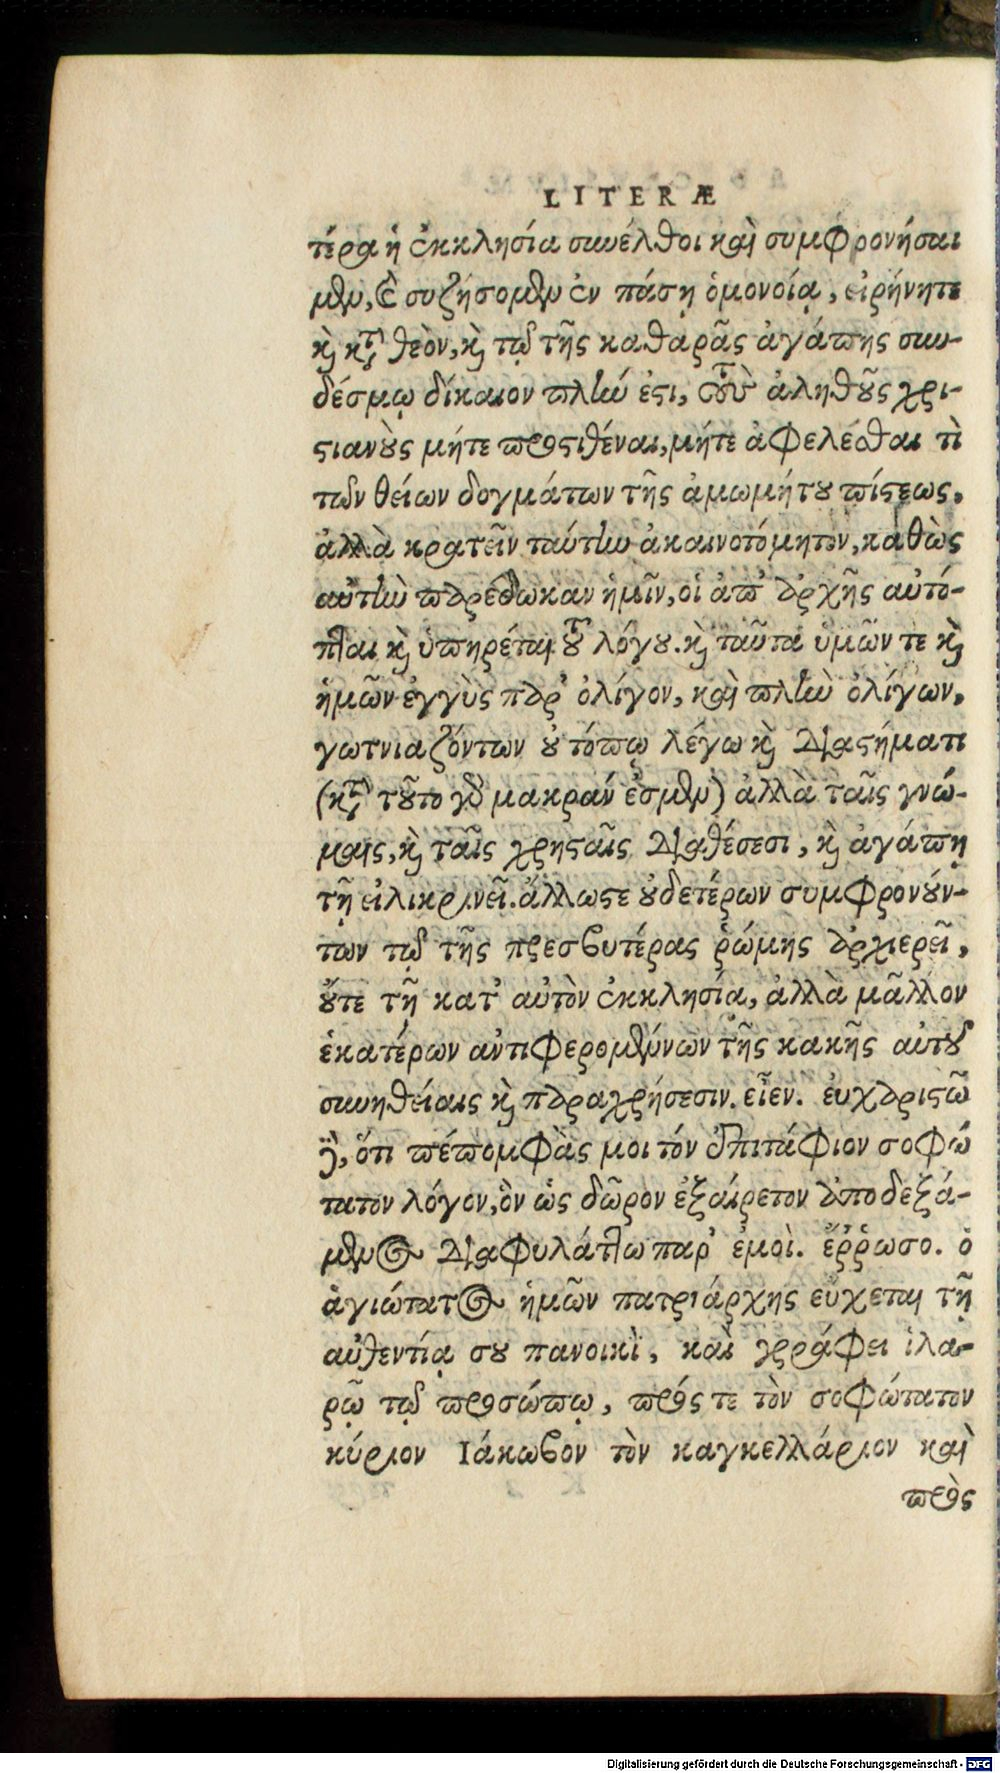 LITERÆ
τέρα ἡ ἐκκλησία συνέλθοι καὶ συμφρονήσαι
μεν, καὶ συζήσομεν ἐν πάσῃ ὁμονοίᾳ, εἰρήνῃ τε
καὶ κατὰ θεὸν, καὶ τῷ τῆς καθαρᾶς ἀγάπης συν-
δέσμῳ δίκαιον πλὴν ἐστι, τοὺς ἀληθοῦς χρι-
στιανοὺς μήτε προστιθέναι, μήτε ἀφελέσθαι τὶ
τῶν θείων δογμάτων τῆς ἀμωμήτου πίστεως.
ἀλλὰ κρατεῖν ταύτην ἀκαινοτόμητον, καθὼς
αὐτὴν παρέδωκαν ἡμῖν, οἱ ἀπ' ἀρχῆς αὐτό-
πται καὶ ὑπηρέται τοῦ λόγου. καὶ ταῦτα ὑμῶν τε καὶ
ἡμῶν ἐγγὺς παρ' ὀλίγον, καὶ πλὴν ὀλίγων,
γωτνιαζόντων οὐ τόπῳ λέγω καὶ διαστήματι
(κατὰ τοῦτο γὰρ μακράν ἐσμεν) ἀλλὰ ταῖς γνώ-
μαις, καὶ ταῖς χρησταῖς διαθέσεσι, καὶ ἀγάπῃ
τῇ εἰλικρινεῖ. ἄλλωστε οὐδετέρων συμφρονούν-
των τῷ τῆς πρεσβυτέρας ῥώμης ἀρχιερεῖ,
οὔτε τῇ κατ' αὐτὸν ἐκκλησίᾳ, ἀλλὰ μᾶλλον
ἑκατέρων ἀντιφερομένων τῆς κακῆς αὐτοῦ
συνηθείαις καὶ παραχρήσεσιν. εἶεν. εὐχαριστῶ
δὲ, ὅτι πέπομφας μοι τόν ἐπιτάφιον σοφώ
τατον λόγον, ὃν ὡς δῶρον ἐξαίρετον ἀποδεξά-
μενος διαφυλάττω παρ' ἐμοὶ. ἔῤῥωσο. ὁ
ἁγιώτατος ἡμῶν πατριάρχης εὔχεται τῇ
αὐθεντίᾳ σου πανοικὶ, καὶ γράφει ἱλα-
ρῷ τῷ προσώπῳ, πρός τε τὸν σοφώτατον
κύριον Ιάκωβον τὸν καγκελλάριον καὶ
πρὸς
Digitalisierung gefördert durch die Deutsche Forschungsgemeinschaft - DFG